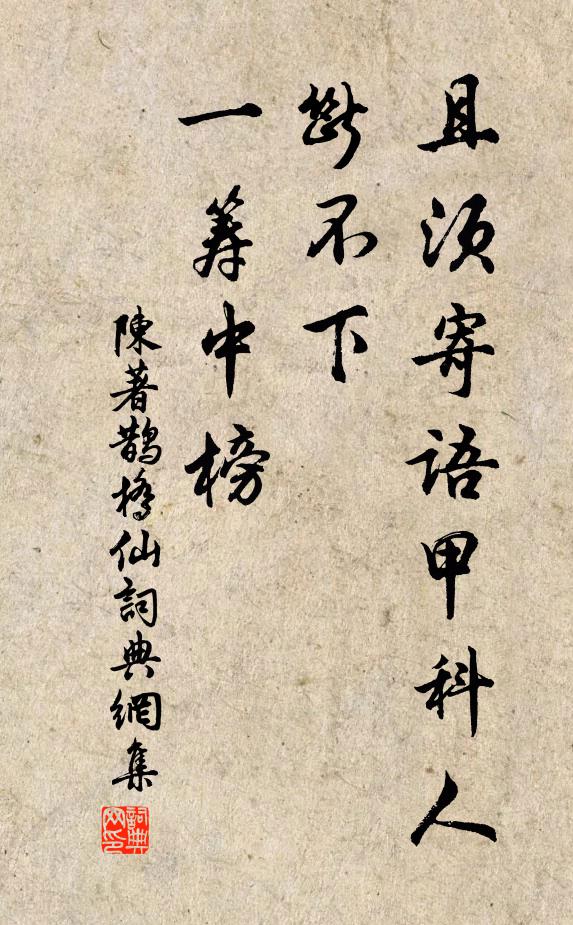 且須寄語甲科人
斷不下
一籌中榜
陳著鵲橋仙詞典網集
詞典网印